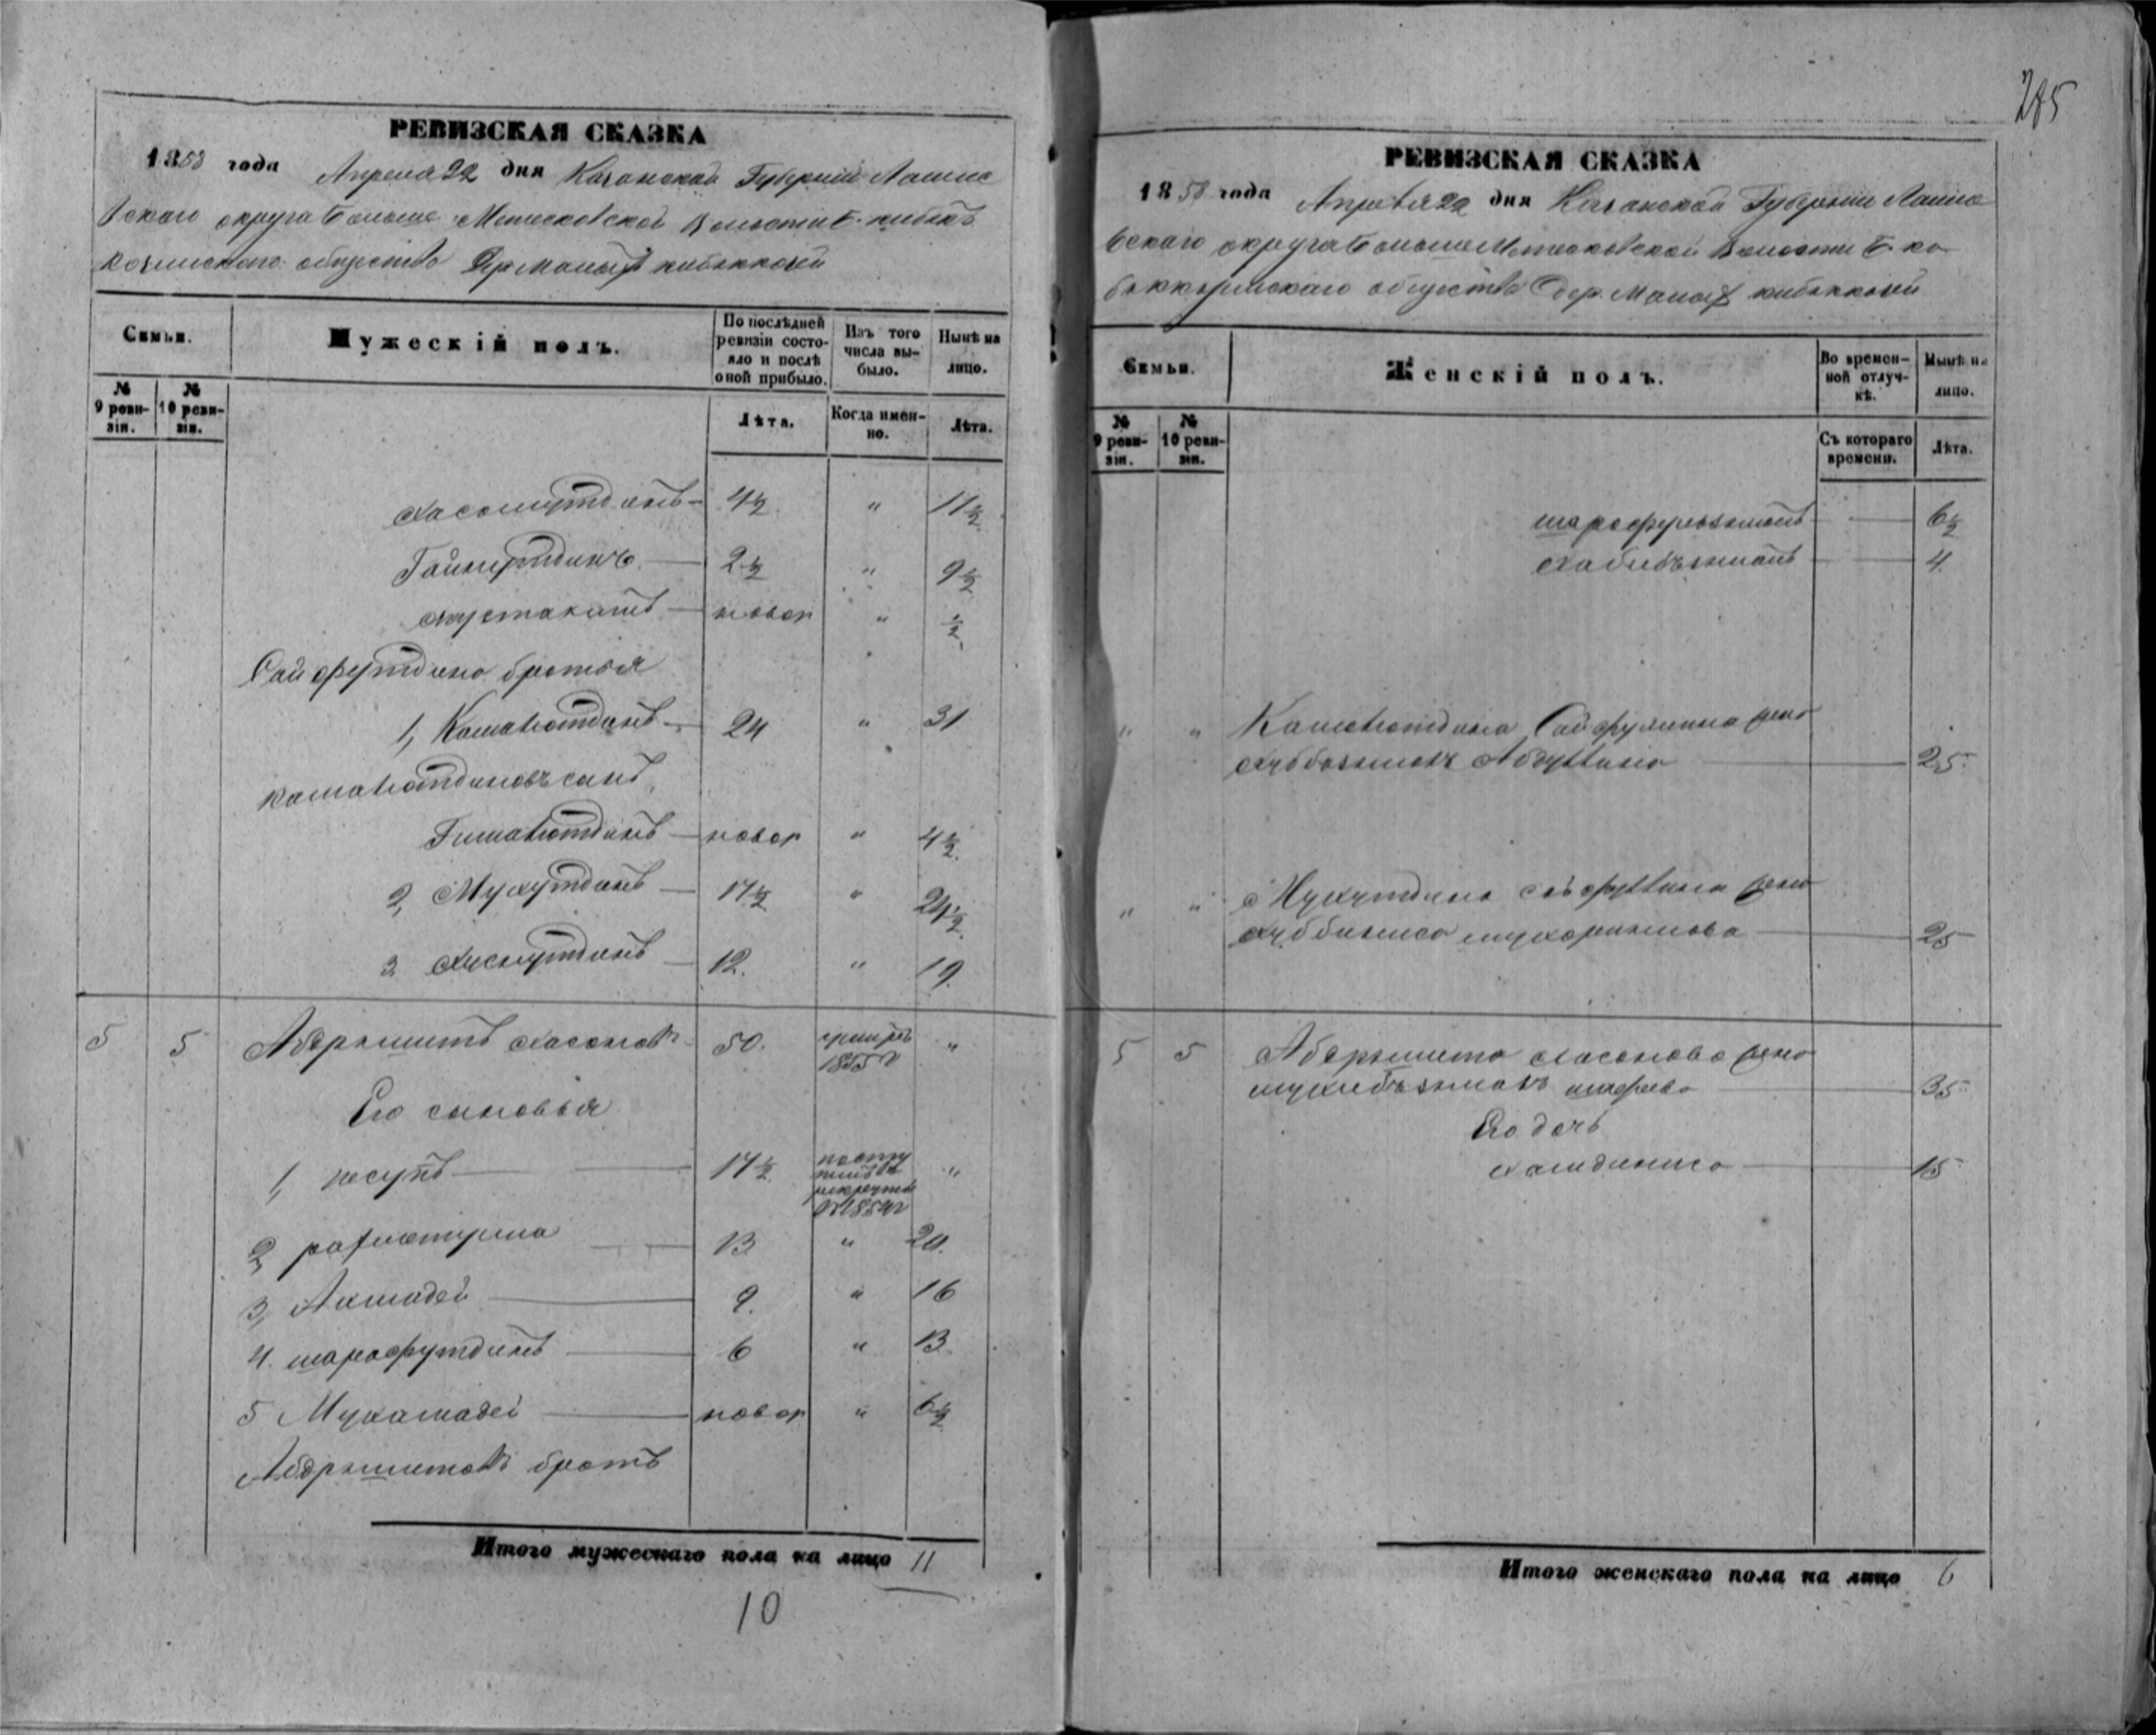 РЕВИЗСКАЯ СКАЗКА
1858 года Апреля 22 дня Казанской Губернии Лаише
вскаго округа Больше Метесковской Волости Б. кибяк
козинскаго общества Дер Малыхъ кибяккозей
Семьи.
Мужескій полъ.
По послѣдней ревизіи состояло и послѣ оной прибыло.
Изъ того числа выбыло.
Нынѣ на лицо.
№ 9 ревизіи.
№ 10 ревизіи.
Лѣта.
Когда именно.
Лѣта.
Хасанутдинъ 4½ " 11½
Гайнутдинъ 2½ " 9½
Мустакимъ новор " ½
Сайфутдина братья
1, Камалютдинъ 24 " 31
Камалютдиновъ сынъ
Гималютдинъ новор " 4½
2, Мухутдинъ 17½ " 24½
3 Хиснутдинъ 12. " 19.
5 5 Абдрышитъ Хасановъ 50. умре въ 1855 г "
Его сыновья
1, юсупъ 17½ рекруты въ 1854 г "
2, 13 " 20.
3, Ахмадей 9. " 16
4. шарафутдинъ 6 " 13.
5 Мухамадей новор " 6½
Абдрышитовъ братъ
Итого мужескаго пола на лицо 11
10
285
РЕВИЗСКАЯ СКАЗКА
1858 года Апреля 22 дня Казанской Губернии Лаише
вскаго округа Больше Метесковской Волости Б. ки
бяккозинскаго общества Дер. Малыхъ кибяккозей
Семьи.
Женскій полъ.
Во временной отлучкѣ.
Нынѣ на лицо.
№ 9 ревизіи.
№ 10 ревизіи.
Съ котораго времени.
Лѣта.
6½
Хабибзямалъ 4.
" " Камалютдина Сайфуллина жена
Абдуллина 25.
" " Мухутдина жена
25
5 5 Абдрышита Хасанова жена
35
Его дочь
15
Итого женскаго пола на лицо 6